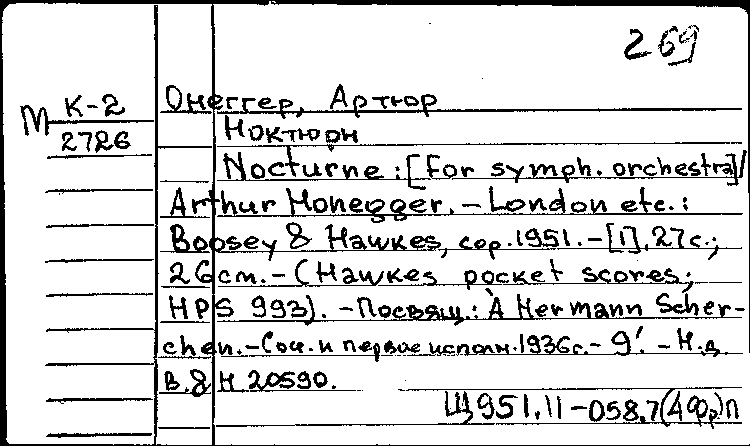 269
М К-2
2726
Онеггер, Артюр
Ноктюрн
Nocturne : [For symph. orchestra] /
Arthur Honegger. – London etc. :
Boosey & Hawkes, cop. 1951. – [1], 27 с.;
26 cm. – (Hawkes pocket scores;
HPS 993). – Посвящ.: À Hermann Scher-
chen. – Соч. и первое исполн. 1936 г. – 9'. – Н.д.
B. & H. 20590.
Щ951.11-058.7(4Фр)п